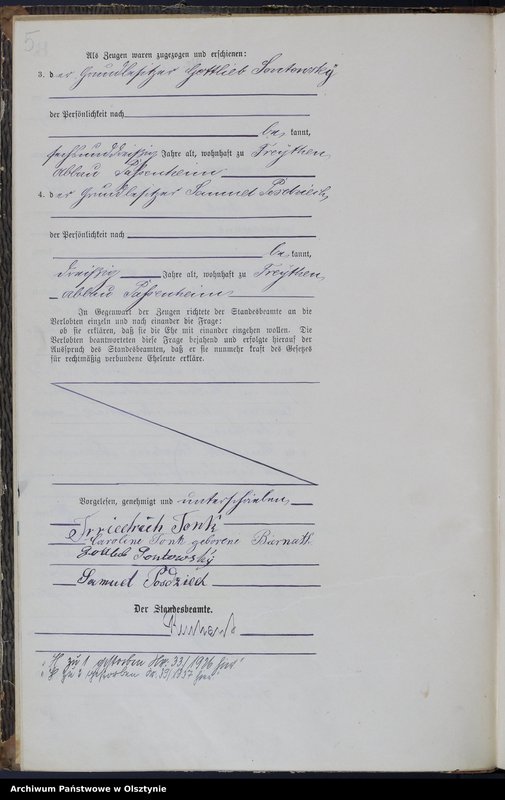 Als Zeugen waren zugezogen und erschienen:
3. der Grundbesitzer Gottlieb Sontowsky
der Persönlichkeit nach
be kannt,
sechsunddreißig Jahre alt, wohnhaft zu Freythen
Abbau Passenheim
4. der Grundbesitzer Samuel Posdziech
der Persönlichkeit nach
be kannt,
dreißig Jahre alt, wohnhaft zu Freythen
Abbau Passenheim
In Gegenwart der Zeugen richtete der Standesbeamte an die
Verlobten einzeln und nach einander die Frage:
ob sie erklären, daß sie die Ehe mit einander eingehen wollen. Die
Verlobten beantworteten diese Frage bejahend und erfolgte hierauf der
Ausspruch des Standesbeamten, daß er sie nunmehr kraft des Gesetzes
für rechtmäßig verbundene Eheleute erkläre.
Vorgelesen, genehmigt und unterschrieben
Friedrich Tonk
Caroline Tonk geborene Barnath
Gottlieb Sontowsky
Samuel Posdziech
Der Standesbeamte.
zu 1 gestorben Nr. 33/1926 hier
zu 2 gestorben Nr. /1937 hier
Archiwum Państwowe w Olsztynie